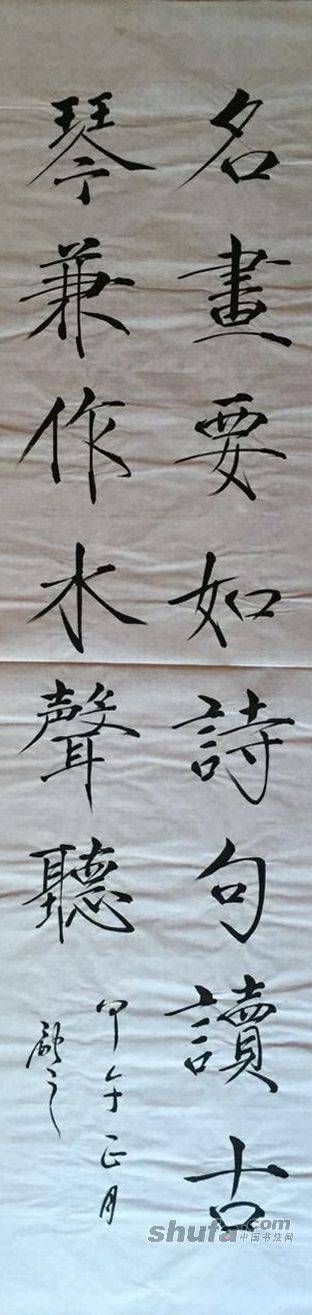 名畫要如詩句讀古
琴兼作水聲聽
甲午正月
shufa.com
中国书法网